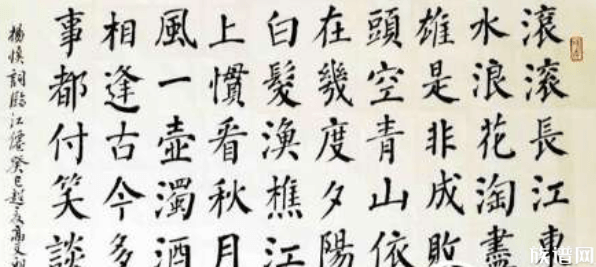 滾滾長江東
水浪花淘盡
雄是非成敗
頭空青山依
在幾度夕陽
白髮漁樵江
上慣看秋月
風一壺濁酒
相逢古今多
事都付笑談
楊慎詞臨江僊癸巳
族谱网